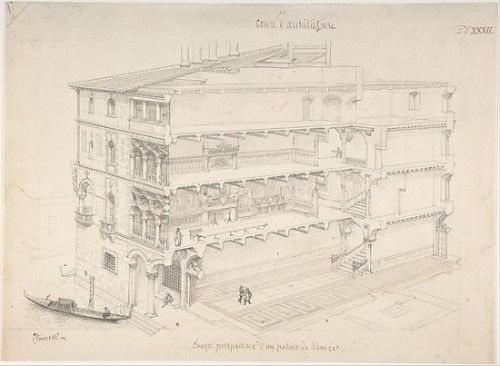 Cours d'architecture
Pl XXXII.
Coupe perspective d'un palais de Venise